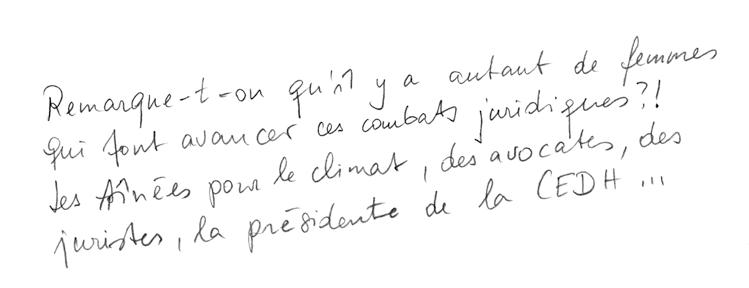 Remarque-t-on qu'il y a autant de femmes
qui font avancer ces combats juridiques?!
Les Aînées pour le climat, des avocates, des
juristes, la présidente de la CEDH ...